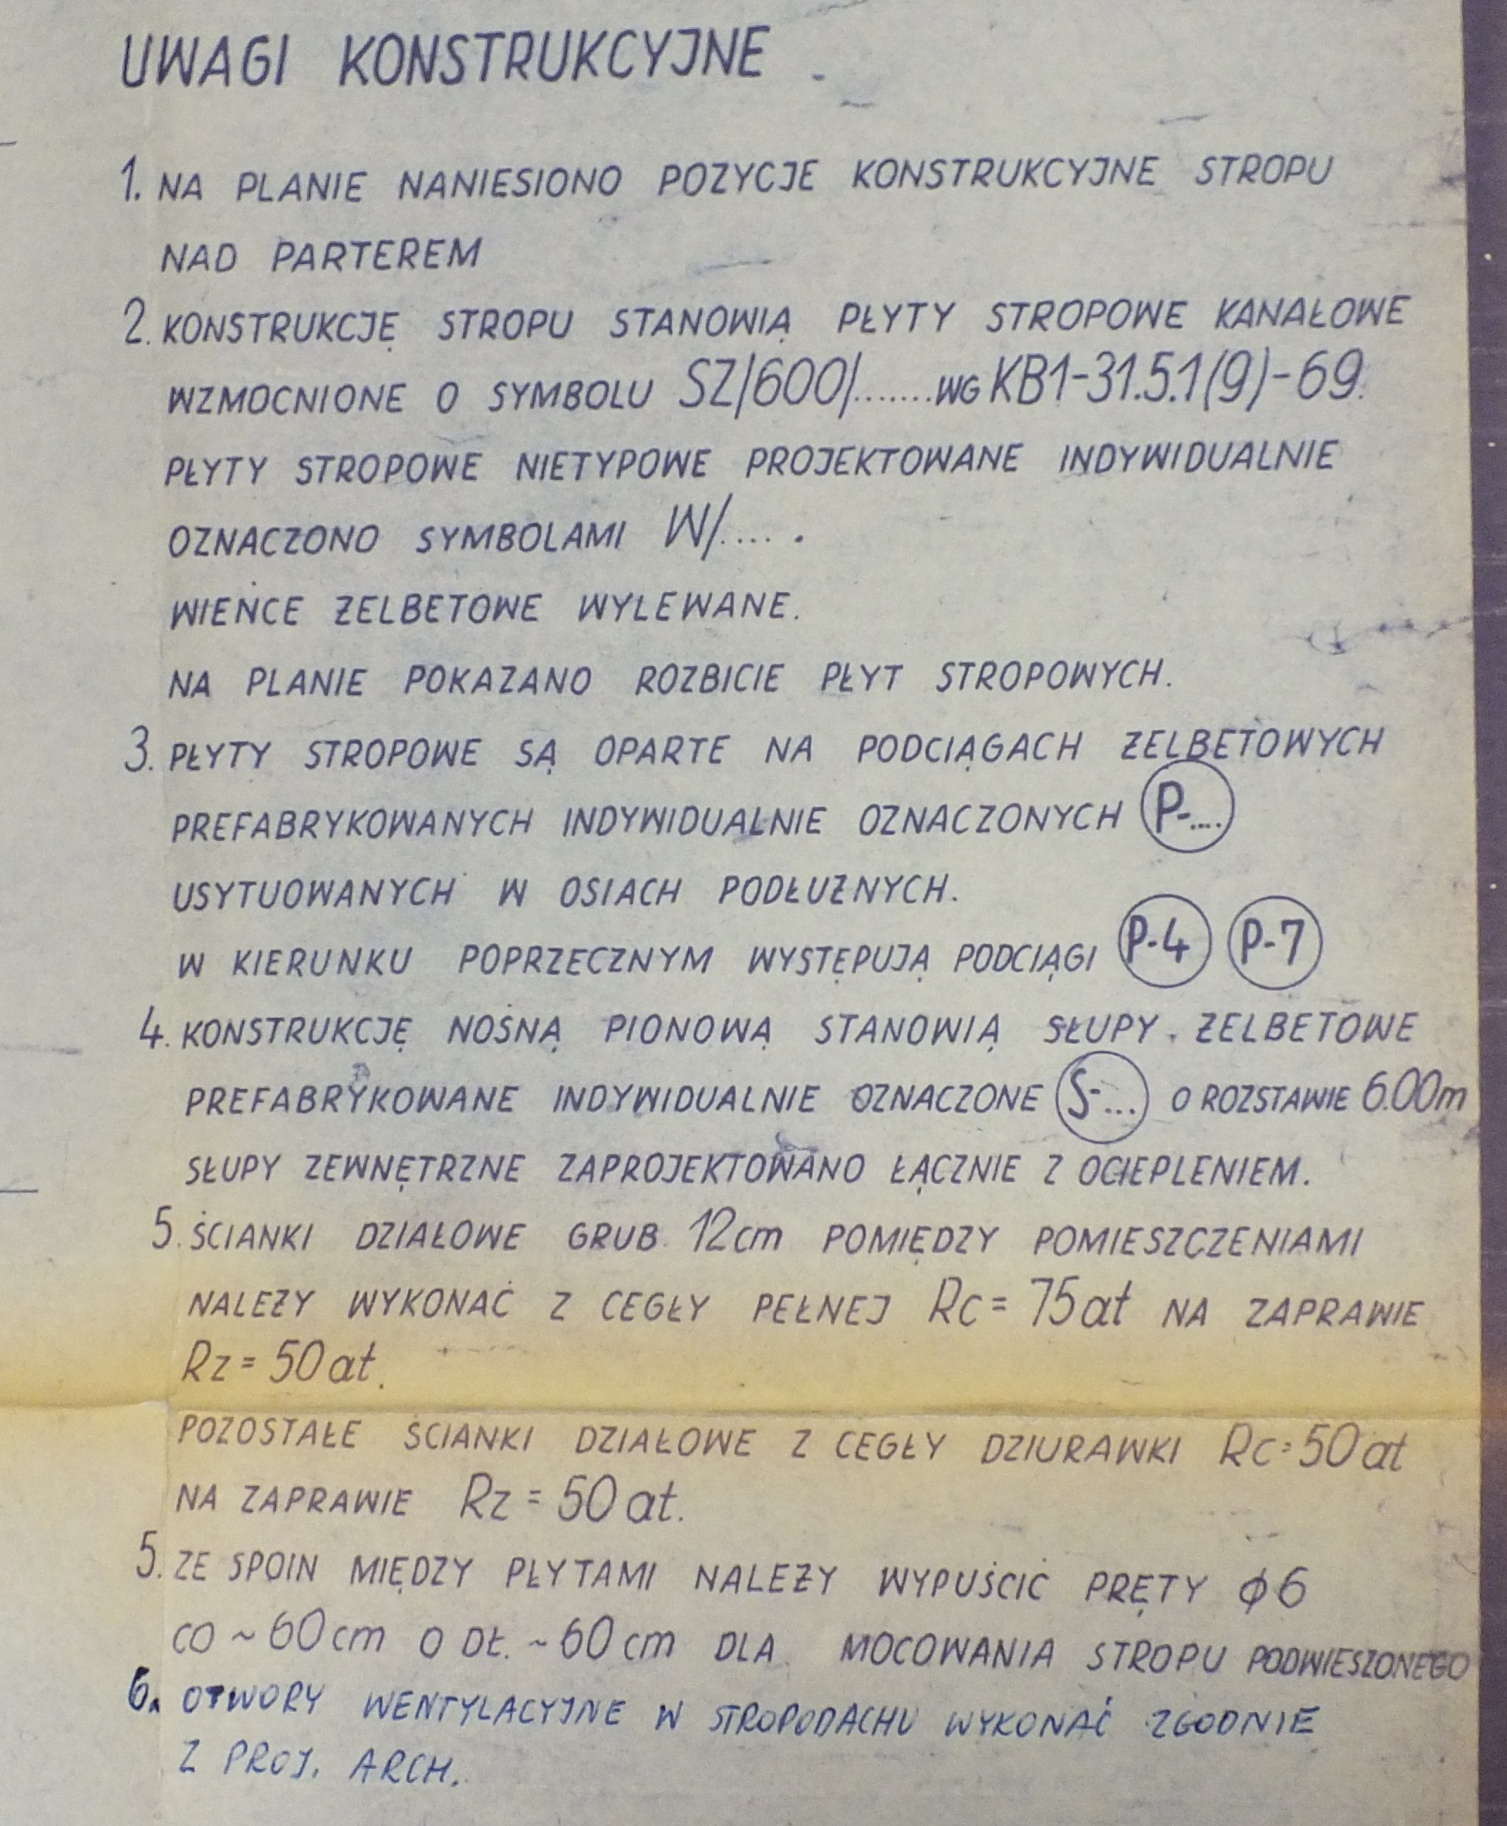 UWAGI KONSTRUKCYJNE
1. NA PLANIE NANIESIONO POZYCJE KONSTRUKCYJNE STROPU
NAD PARTEREM
2. KONSTRUKCJĘ STROPU STANOWIĄ PŁYTY STROPOWE KANAŁOWE
WZMOCNIONE O SYMBOLU SZ/600/....... WG KB1-31.5.1(9)-69.
PŁYTY STROPOWE NIETYPOWE PROJEKTOWANE INDYWIDUALNIE
OZNACZONO SYMBOLAMI W/.... .
WIEŃCE ŻELBETOWE WYLEWANE.
NA PLANIE POKAZANO ROZBICIE PŁYT STROPOWYCH.
3. PŁYTY STROPOWE SĄ OPARTE NA PODCIĄGACH ŻELBETOWYCH
PREFABRYKOWANYCH INDYWIDUALNIE OZNACZONYCH P-....
USYTUOWANYCH W OSIACH PODŁUŻNYCH.
W KIERUNKU POPRZECZNYM WYSTĘPUJĄ PODCIĄGI P-4 P-7
4. KONSTRUKCJĘ NOŚNĄ PIONOWĄ STANOWIĄ SŁUPY ŻELBETOWE
PREFABRYKOWANE INDYWIDUALNIE OZNACZONE S-... O ROZSTAWIE 6.00m
SŁUPY ZEWNĘTRZNE ZAPROJEKTOWANO ŁĄCZNIE Z OCIEPLENIEM.
5. ŚCIANKI DZIAŁOWE GRUB. 12cm POMIĘDZY POMIESZCZENIAMI
NALEŻY WYKONAĆ Z CEGŁY PEŁNEJ Rc = 75 at NA ZAPRAWIE
Rz = 50 at.
POZOSTAŁE ŚCIANKI DZIAŁOWE Z CEGŁY DZIURAWKI Rc = 50 at
NA ZAPRAWIE Rz = 50 at.
5. ZE SPOIN MIĘDZY PŁYTAMI NALEŻY WYPUŚCIĆ PRĘTY ϕ6
CO ~ 60 cm O DŁ. ~ 60 cm DLA MOCOWANIA STROPU PODWIESZONEGO
6. OTWORY WENTYLACYJNE W STROPODACHU WYKONAĆ ZGODNIE
Z PROJ. ARCH.